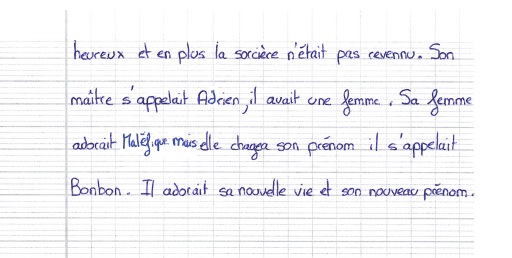 heureux et en plus la sorcière n'était pas revenu. Son
maître s'appelait Adrien, il avait une femme. Sa femme
adorait Maléfique mais elle changa son prénom il s'appelait
Bonbon. Il adorait sa nouvelle vie et son nouveau prénom.